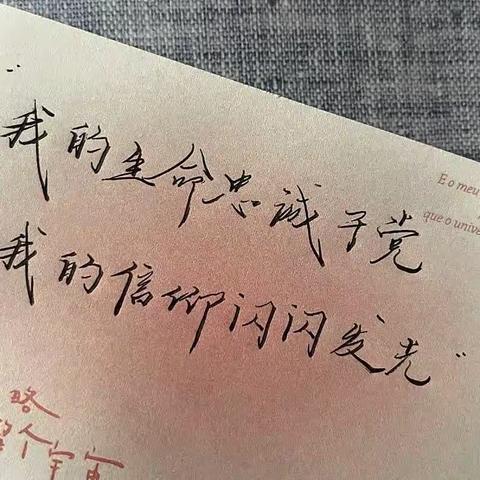 “我的生命忠诚于党
我的信仰闪闪发光”
E o meu
que o unive
略
整个宇宙